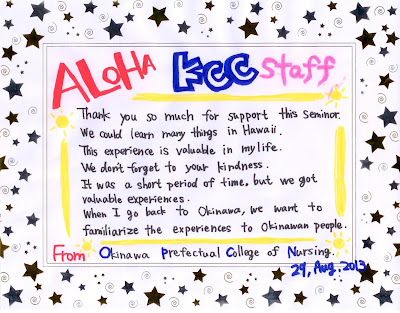 ALOHA KCC staff
Thank you so much for support this seminar.
We could learn many things in Hawaii.
This experience is valuable in my life.
We don't forget to your kindness.
It was a short period of time, but we got
valuable experiences.
When I go back to Okinawa, we want to
familiarize the experiences to Okinawan people.
From Okinawa Prefectual College of Nursing.
29, Aug. 2013